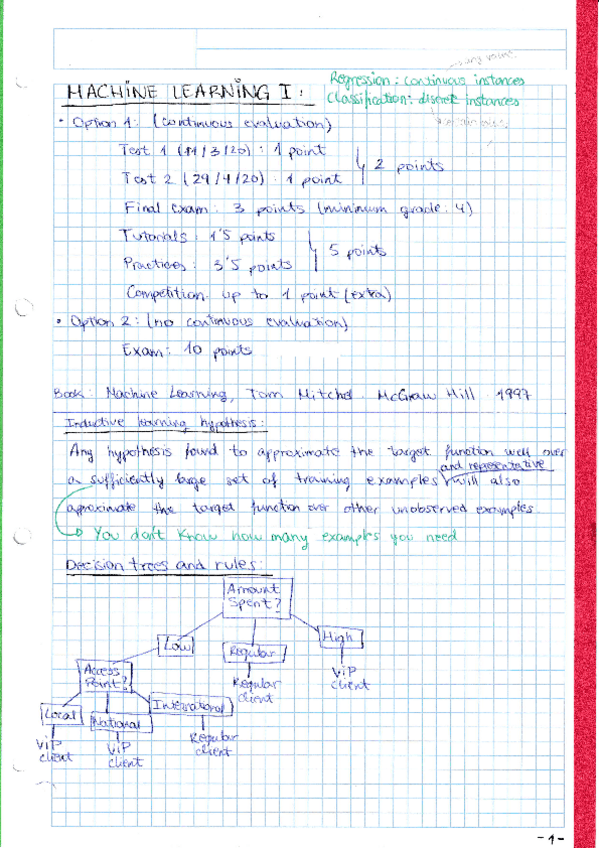 Regression: continuous instances
MACHINE LEARNING I:
Classification: discrete instances
• Option 1: (continuous evaluation)
Test 1 (11/3/20): 1 point
2 points
Test 2 (29/4/20): 1 point
Final exam: 3 points (minimum grade: 4)
Tutorials: 1'5 points
5 points
Practices: 3'5 points
Competition: up to 1 point (extra)
• Option 2: (no continuous evaluation)
Exam: 10 points
Book: Machine Learning, Tom Mitchel. McGraw Hill 1997
Inductive learning hypothesis:
Any hypothesis found to approximate the target function well over
and representative
a sufficiently large set of training examples will also
aproximate the target function over other unobserved examples.
You don't know how many examples you need
Decision trees and rules:
Amount
Spent?
Low
Regular
High
Access
Point?
Regular
client
ViP
client
Local
National
International
ViP
client
ViP
client
Regular
client
-1-